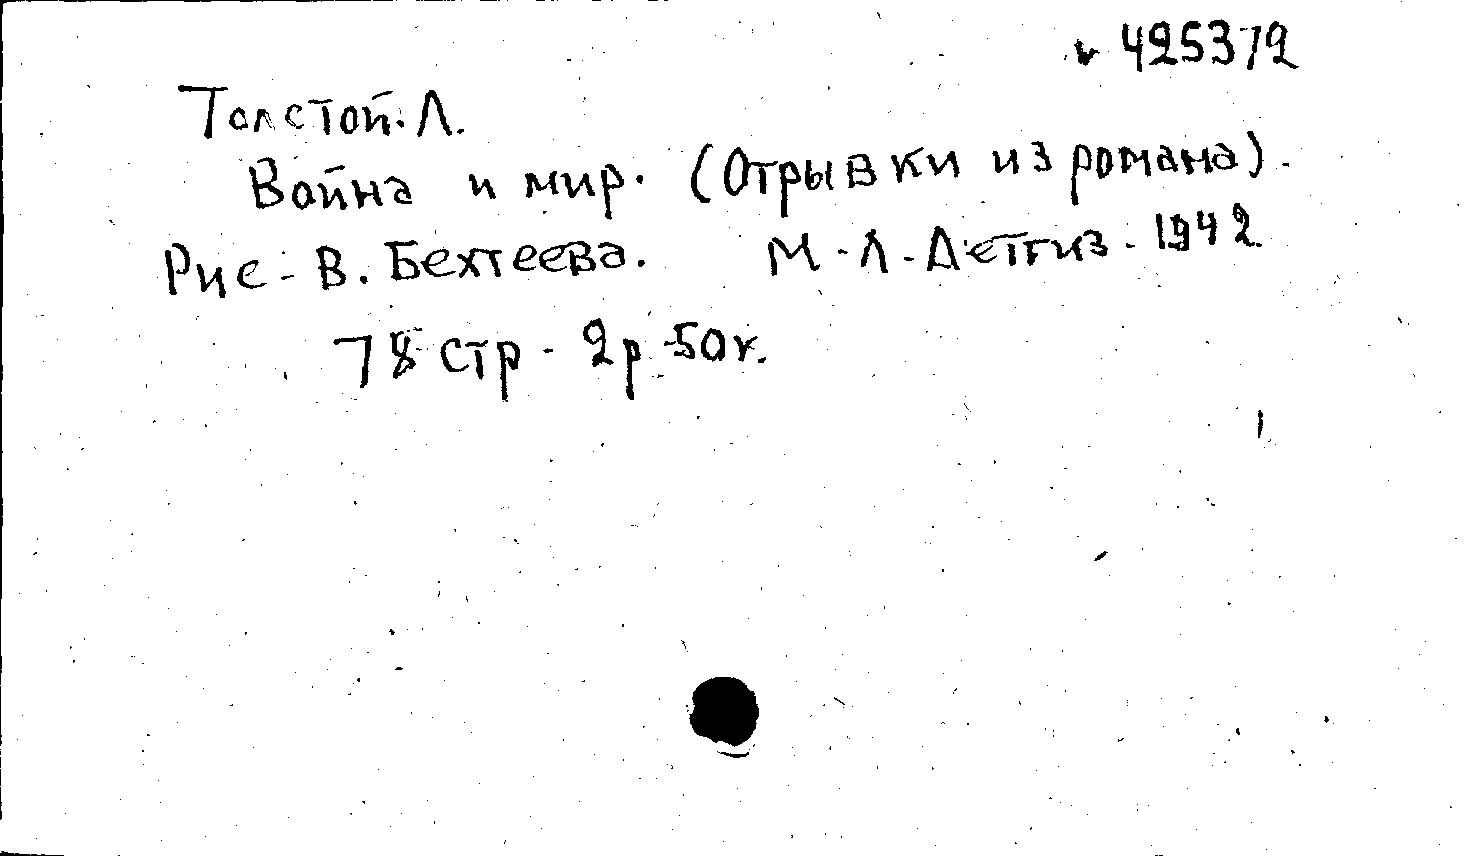 425372
Толстой. Л.
Война и мир. (Отрывки из романа).
Рис. В. Бехтеева. М.-Л. Детгиз. 1942
78 стр. 2р. 50к.